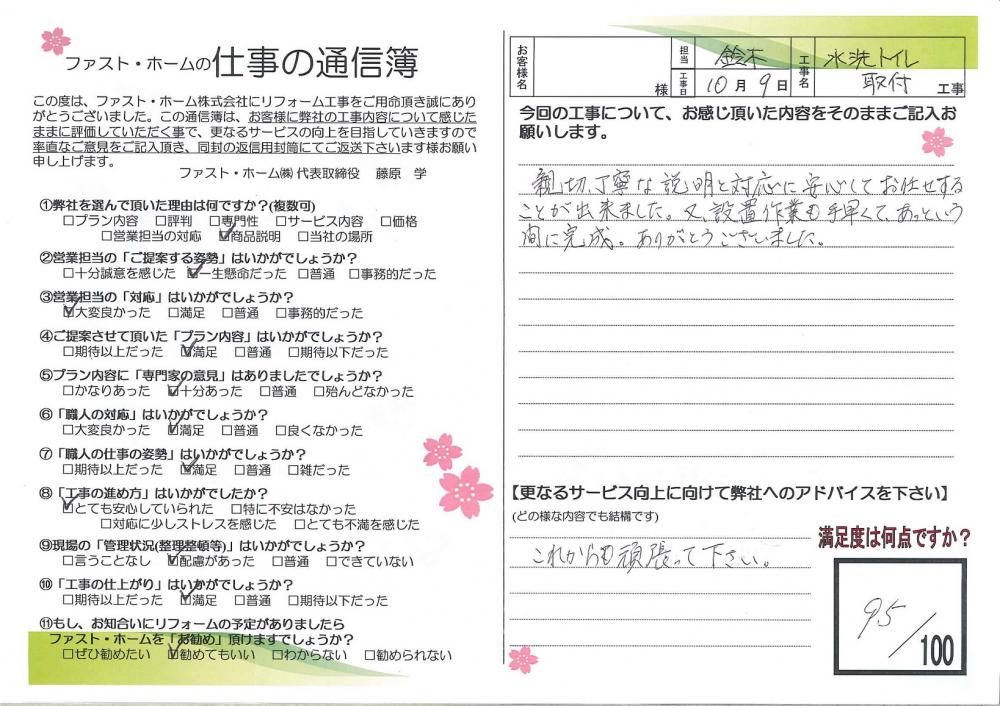 ファスト・ホームの仕事の通信簿
この度は、ファスト・ホーム株式会社にリフォーム工事をご用命頂き誠にあり
がとうございました。この通信簿は、お客様に弊社の工事内容について感じた
ままに評価していただく事で、更なるサービスの向上を目指していきますので
率直なご意見をご記入頂き、同封の返信用封筒にてご返送下さいます様お願い
申し上げます。
ファスト・ホーム㈱ 代表取締役 藤原 学
①弊社を選んで頂いた理由は何ですか?(複数可)
□プラン内容 □評判 □専門性 □サービス内容 □価格
□営業担当の対応 ☑商品説明 □当社の場所
②営業担当の「ご提案する姿勢」はいかがでしょうか?
□十分誠意を感じた ☑一生懸命だった □普通 □事務的だった
③営業担当の「対応」はいかがでしょうか?
☑大変良かった □満足 □普通 □事務的だった
④ご提案させて頂いた「プラン内容」はいかがでしょうか?
□期待以上だった ☑満足 □普通 □期待以下だった
⑤プラン内容に「専門家の意見」はありましたでしょうか?
□かなりあった ☑十分あった □普通 □殆んどなかった
⑥「職人の対応」はいかがでしょうか?
□大変良かった ☑満足 □普通 □良くなかった
⑦「職人の仕事の姿勢」はいかがでしょうか?
□期待以上だった ☑満足 □普通 □雑だった
⑧「工事の進め方」はいかがでしたか?
☑とても安心していられた □特に不安はなかった
□対応に少しストレスを感じた □とても不満を感じた
⑨現場の「管理状況(整理整頓等)」はいかがでしょうか?
□言うことなし ☑配慮があった □普通 □できていない
⑩「工事の仕上がり」はいかがでしょうか?
□期待以上だった ☑満足 □普通 □期待以下だった
⑪もし、お知合いにリフォームの予定がありましたら
ファスト・ホームを「お勧め」頂けますでしょうか?
□ぜひ勧めたい ☑勧めてもいい □わからない □勧められない
お客様名 様 担当 鈴木 工事名 水洗トイレ
工事日 10月9日 取付 工事
今回の工事について、お感じ頂いた内容をそのままご記入お
願いします。
親切、丁寧な説明と対応に安心してお任せする
ことが出来ました。又、設置作業も手早くて、あっという
間に完成。ありがとうございました。
【更なるサービス向上に向けて弊社へのアドバイスを下さい】
(どの様な内容でも結構です)
これからも頑張って下さい。
満足度は何点ですか?
95/100